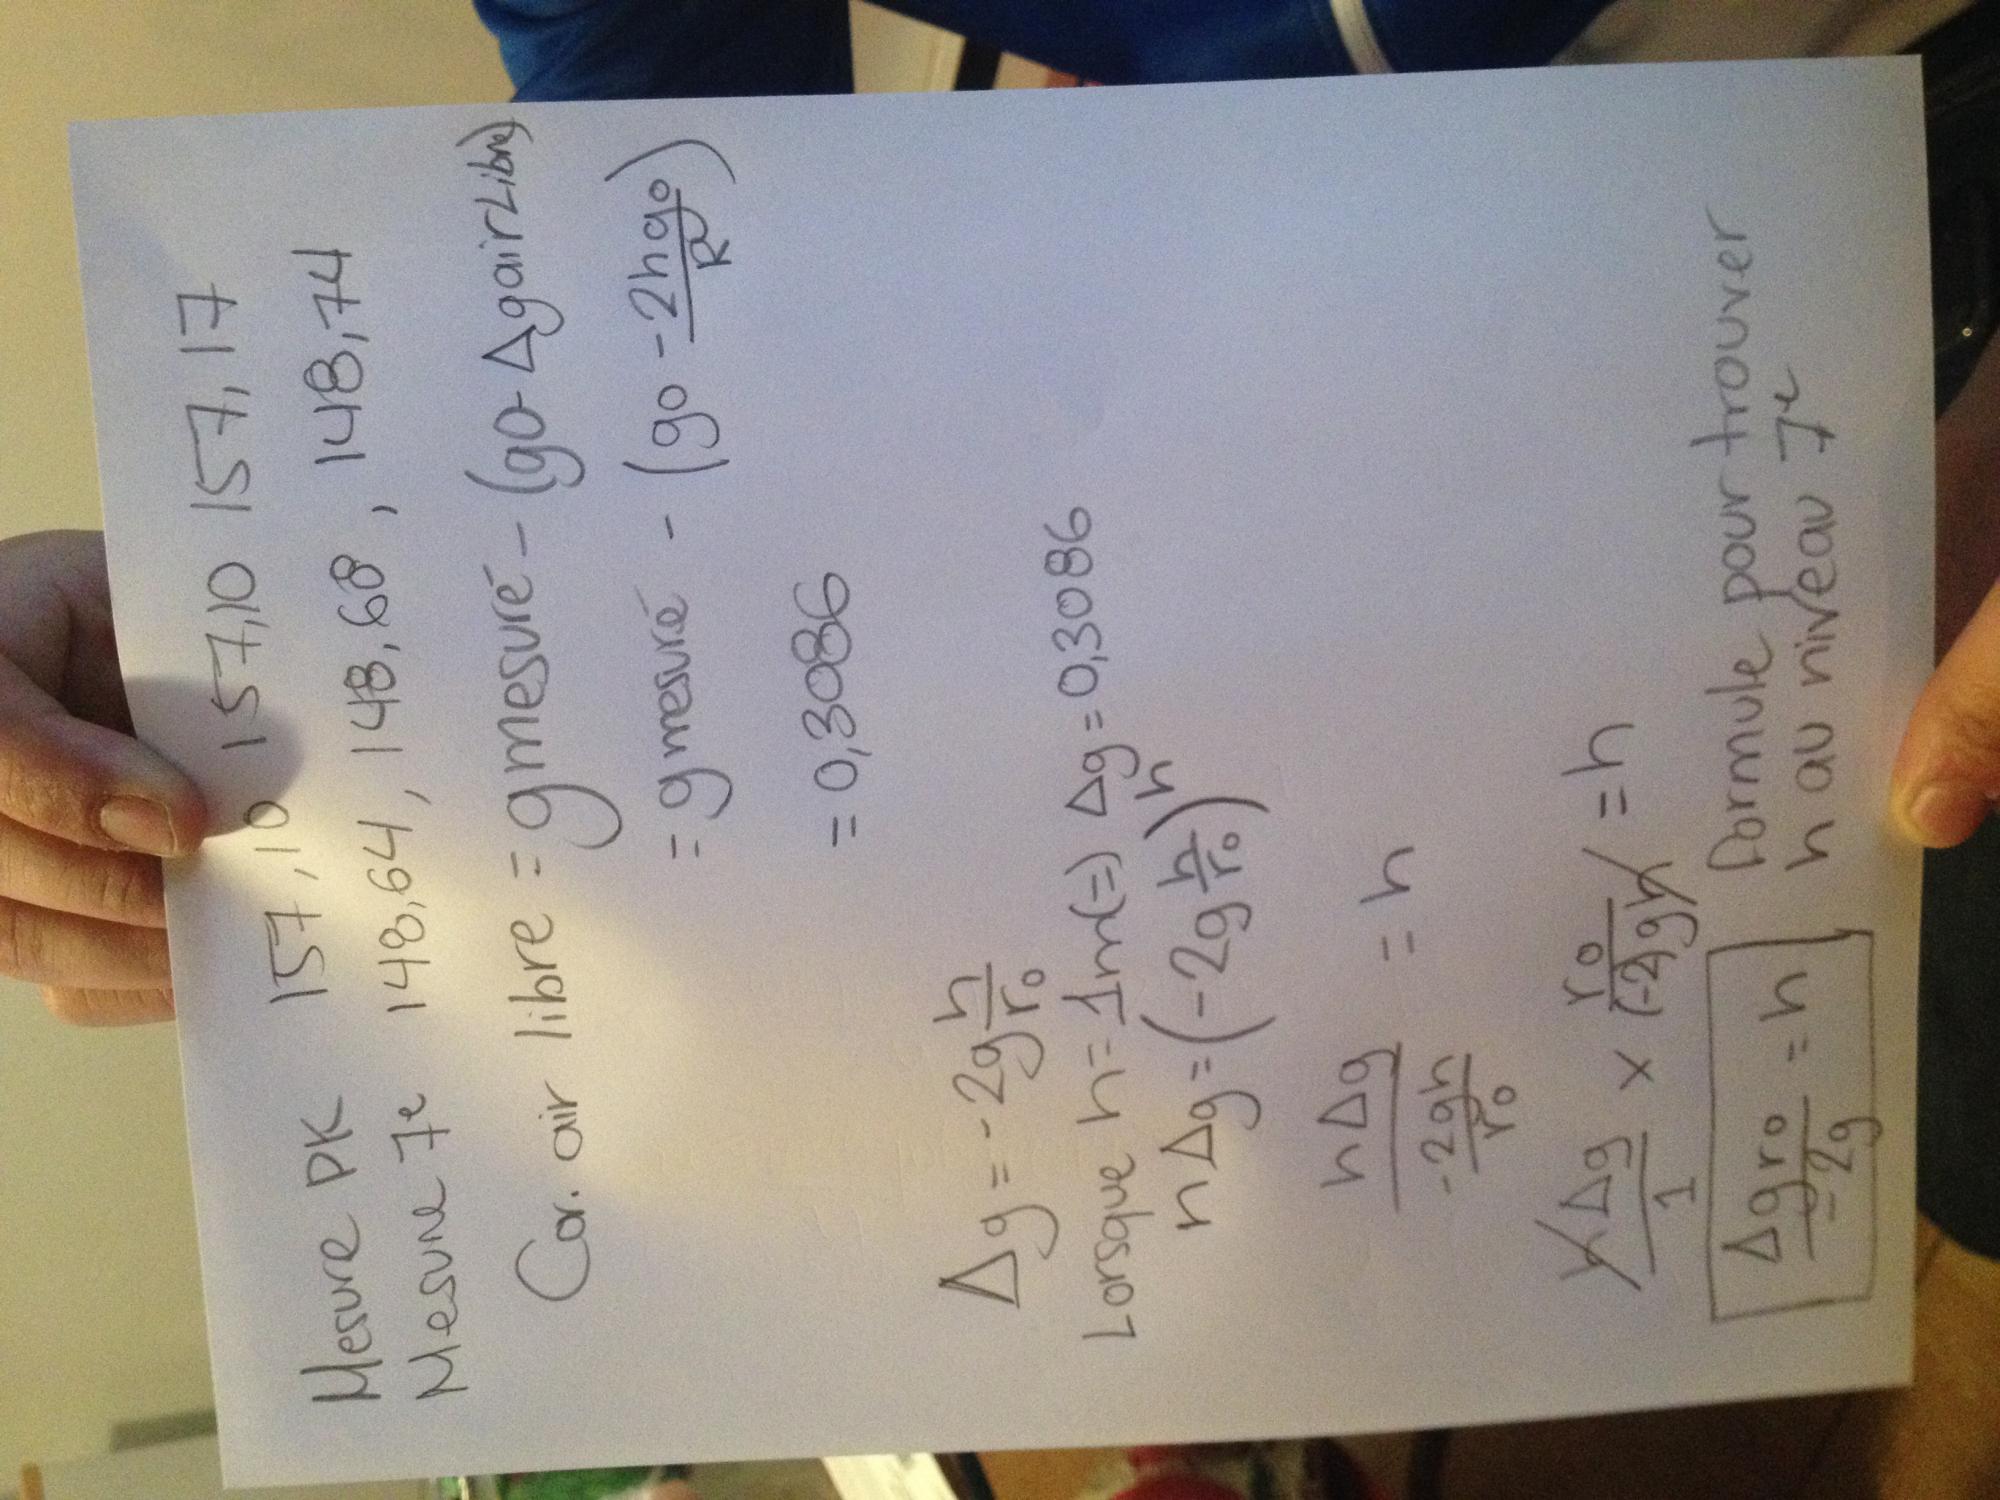 Mesure PK 157,10 157,10 157,17
Mesure 7e 148,64, 148,68, 148,74
Cor. air libre = gmesuré - (go - Δgair Libre)
= gmesuré - (go - 2hgo/R)
= 0,3086
Δg = -2g h/ro
Lorsque h = 1m (=) Δg = 0,3086
hΔg = (-2g h/ro) h
hΔg / (-2gh/ro) = h
hΔg/1 × ro/(-2gh) = h
Δgro/-2g = h Formule pour trouver
h au niveau 7e